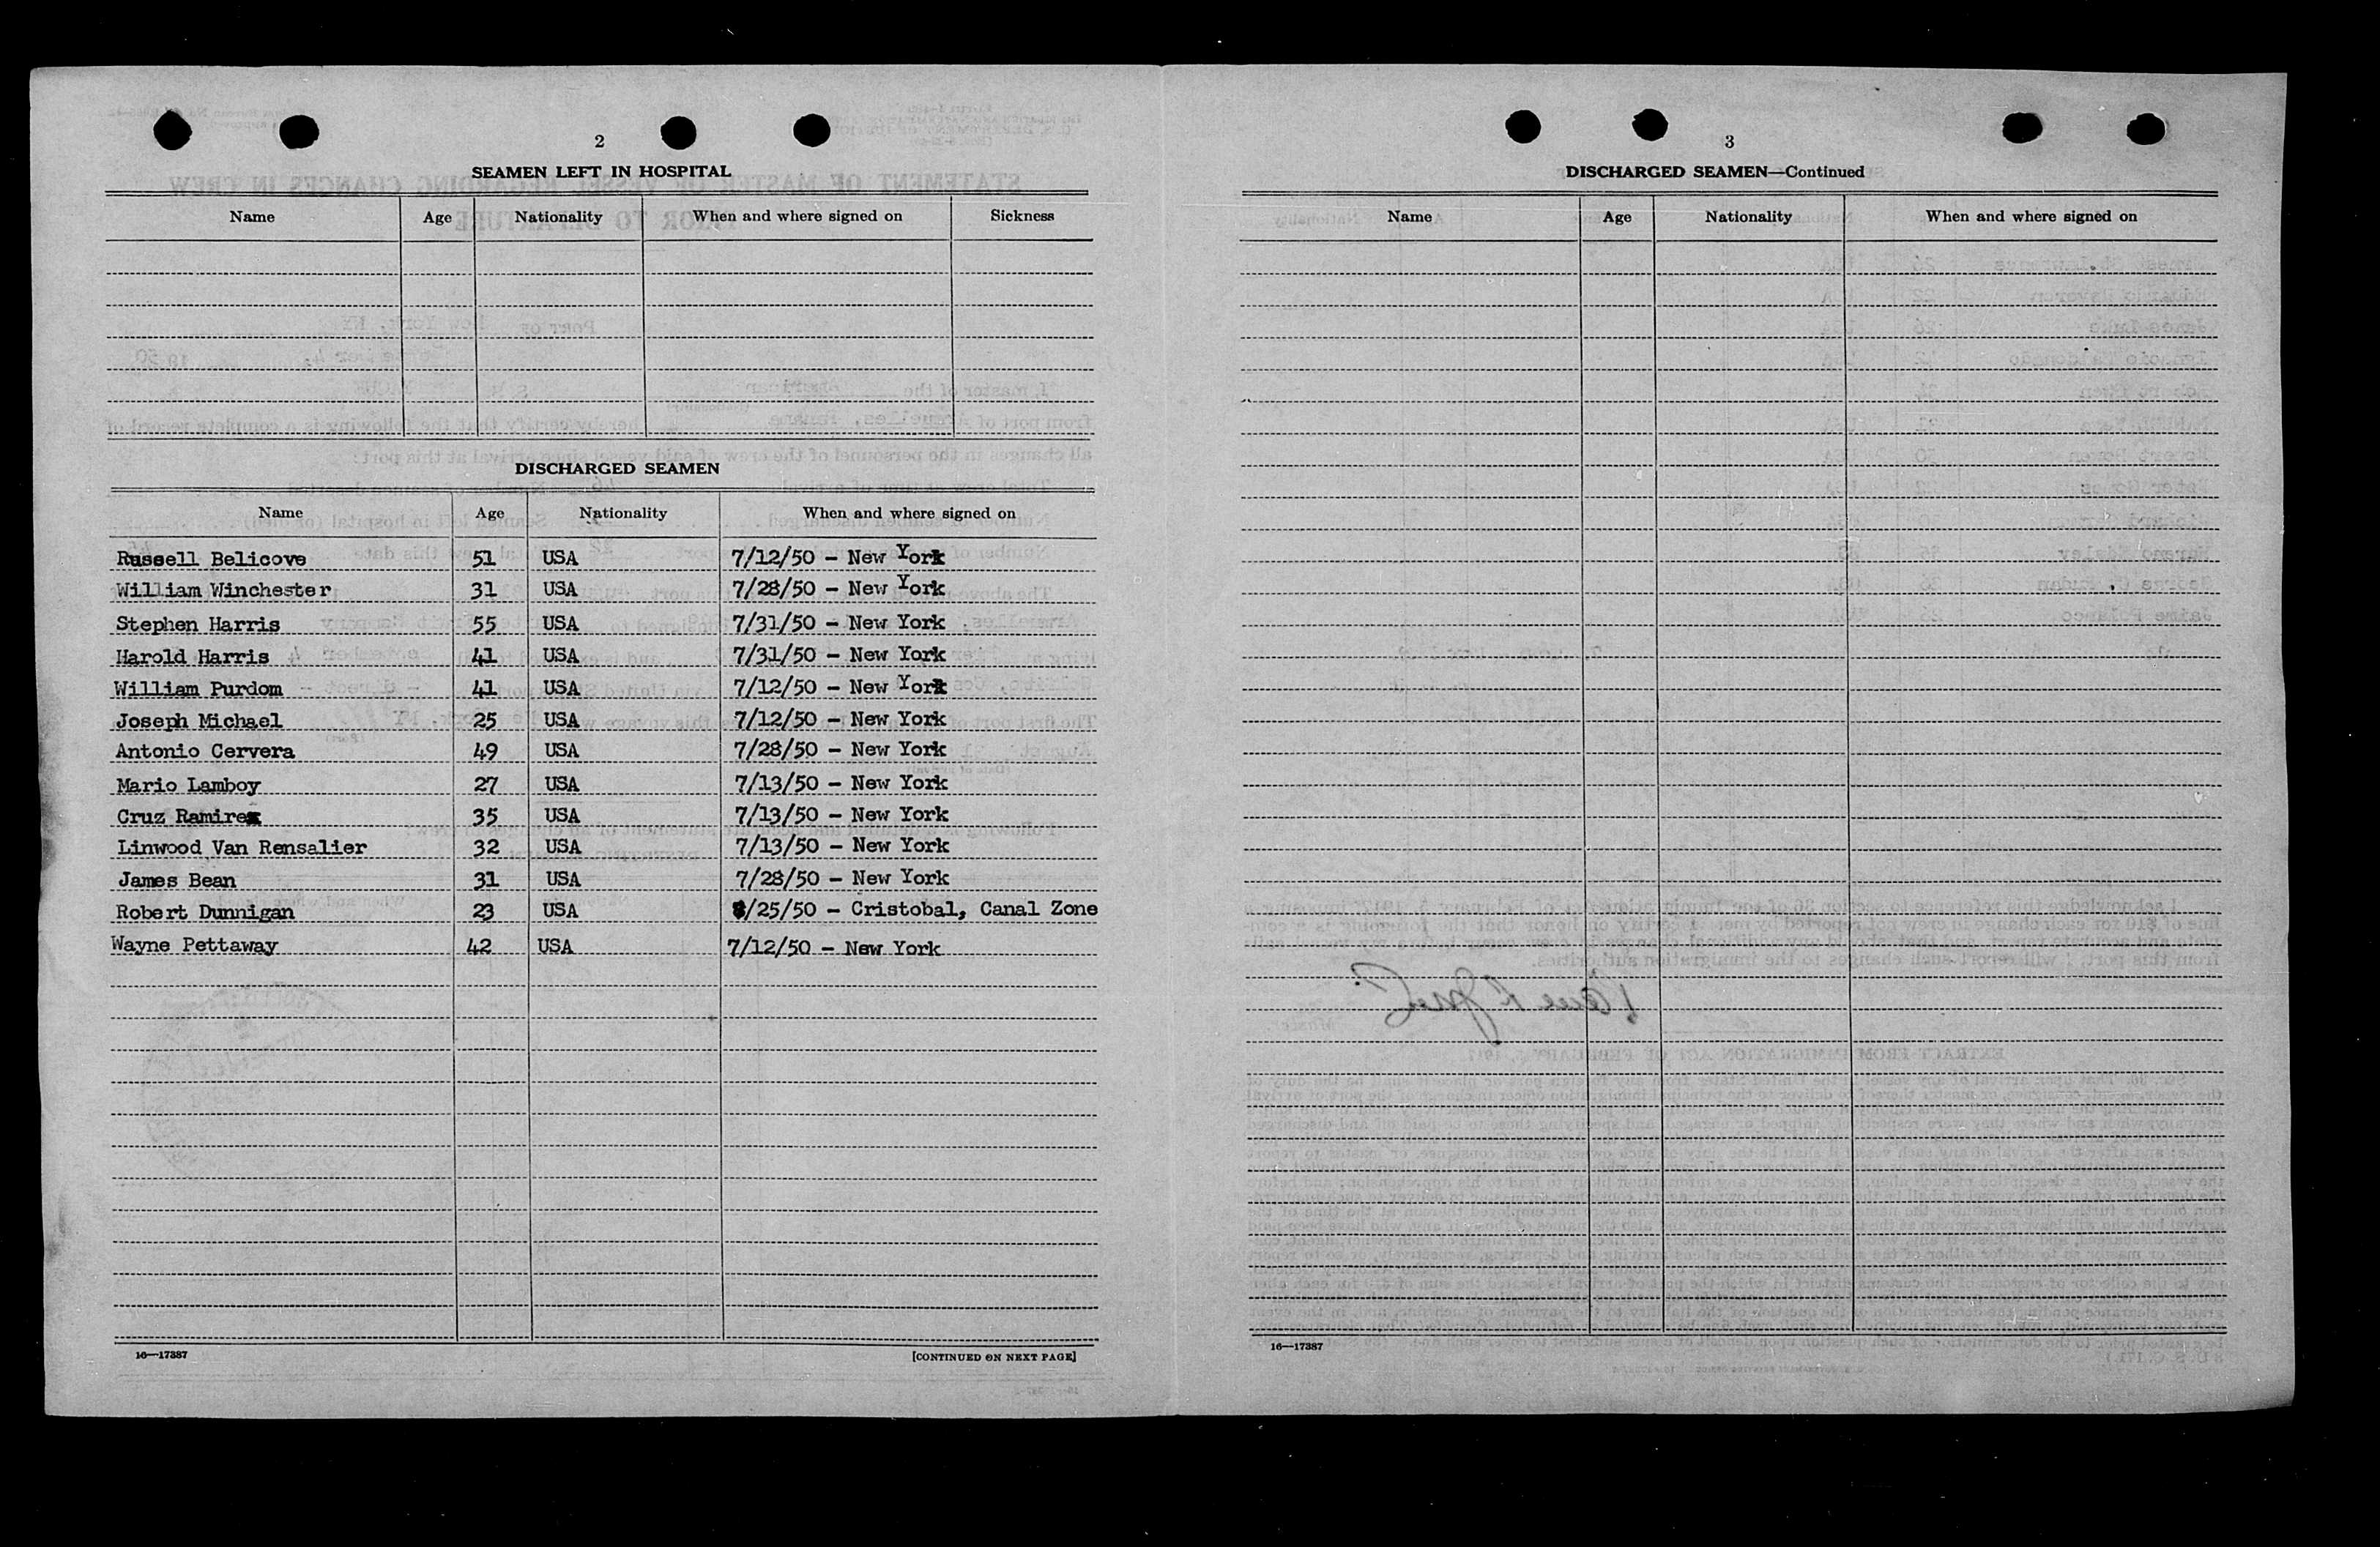 2
SEAMEN LEFT IN HOSPITAL
Name Age Nationality When and where signed on Sickness
DISCHARGED SEAMEN
Name Age Nationality When and where signed on
Russell Belicove 51 USA 7/12/50 - New York
William Winchester 31 USA 7/28/50 - New York
Stephen Harris 55 USA 7/31/50 - New York
Harold Harris 41 USA 7/31/50 - New York
William Purdom 41 USA 7/12/50 - New York
Joseph Michael 25 USA 7/12/50 - New York
Antonio Cervera 49 USA 7/28/50 - New York
Mario Lamboy 27 USA 7/13/50 - New York
Cruz Ramirez 35 USA 7/13/50 - New York
Linwood Van Rensalier 32 USA 7/13/50 - New York
James Bean 31 USA 7/28/50 - New York
Robert Dunnigan 23 USA 8/25/50 - Cristobal, Canal Zone
Wayne Pettaway 42 USA 7/12/50 - New York
16—17387 [CONTINUED ON NEXT PAGE]
3
DISCHARGED SEAMEN—Continued
Name Age Nationality When and where signed on
16—17387